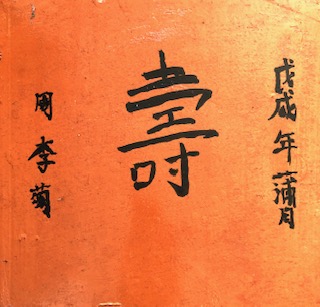 戊戌年蒲月
壽
周李菊